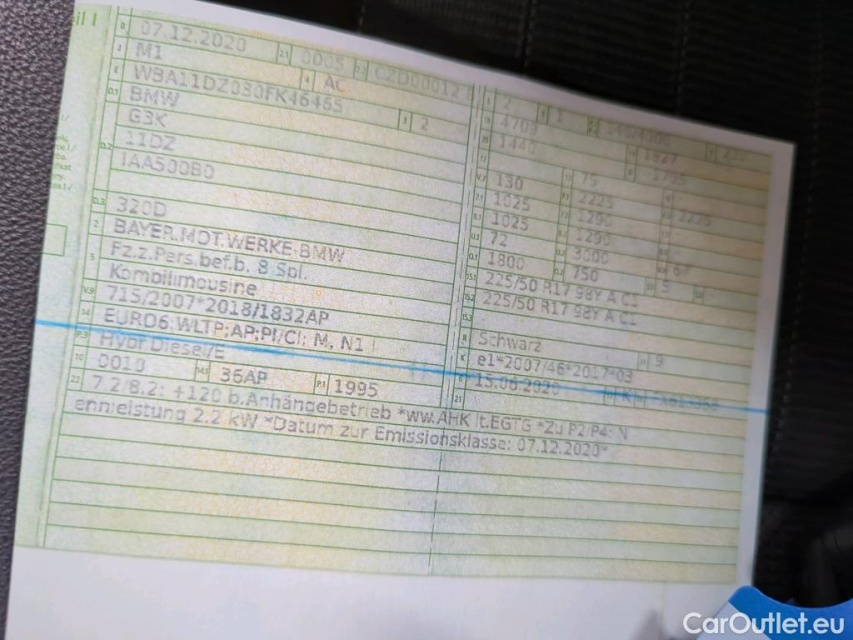 eil I
B 07.12.2020 2.1 0005 2.2 CZD00012
J M1 4 AC
E WBA11DZ030FK46465
D.1 BMW 2
G3K
D.2 11DZ
IAA500B0
D.3 320D
2 BAYER.MOT.WERKE-BMW
5 Fz.z.Pers.bef.b. 8 Spl.
Kombilimousine
V.9 715/2007*2018/1832AP
14 EURO6;WLTP;AP;PI/CI; M, N1 I
P.3 Hybr.Diesel/E
10 0010 14.1 36AP P.1 1995
22 7.2/8.2: +120 b.Anhängebetrieb *ww.AHK lt.EGTG *Zu P2/P4: N
ennleistung 2.2 kW *Datum zur Emissionsklasse: 07.12.2020*
2 1
4709 1827
1440
130 75
1025 2225 2225
1025 1290
72 1290
1800 3000 67
750 5
15.1 225/50 R17 98Y A C1
15.2 225/50 R17 98Y A C1
R Schwarz 9
K e1*2007/46*2017*03
6 15.06.2020 K
21
CarOutlet.eu